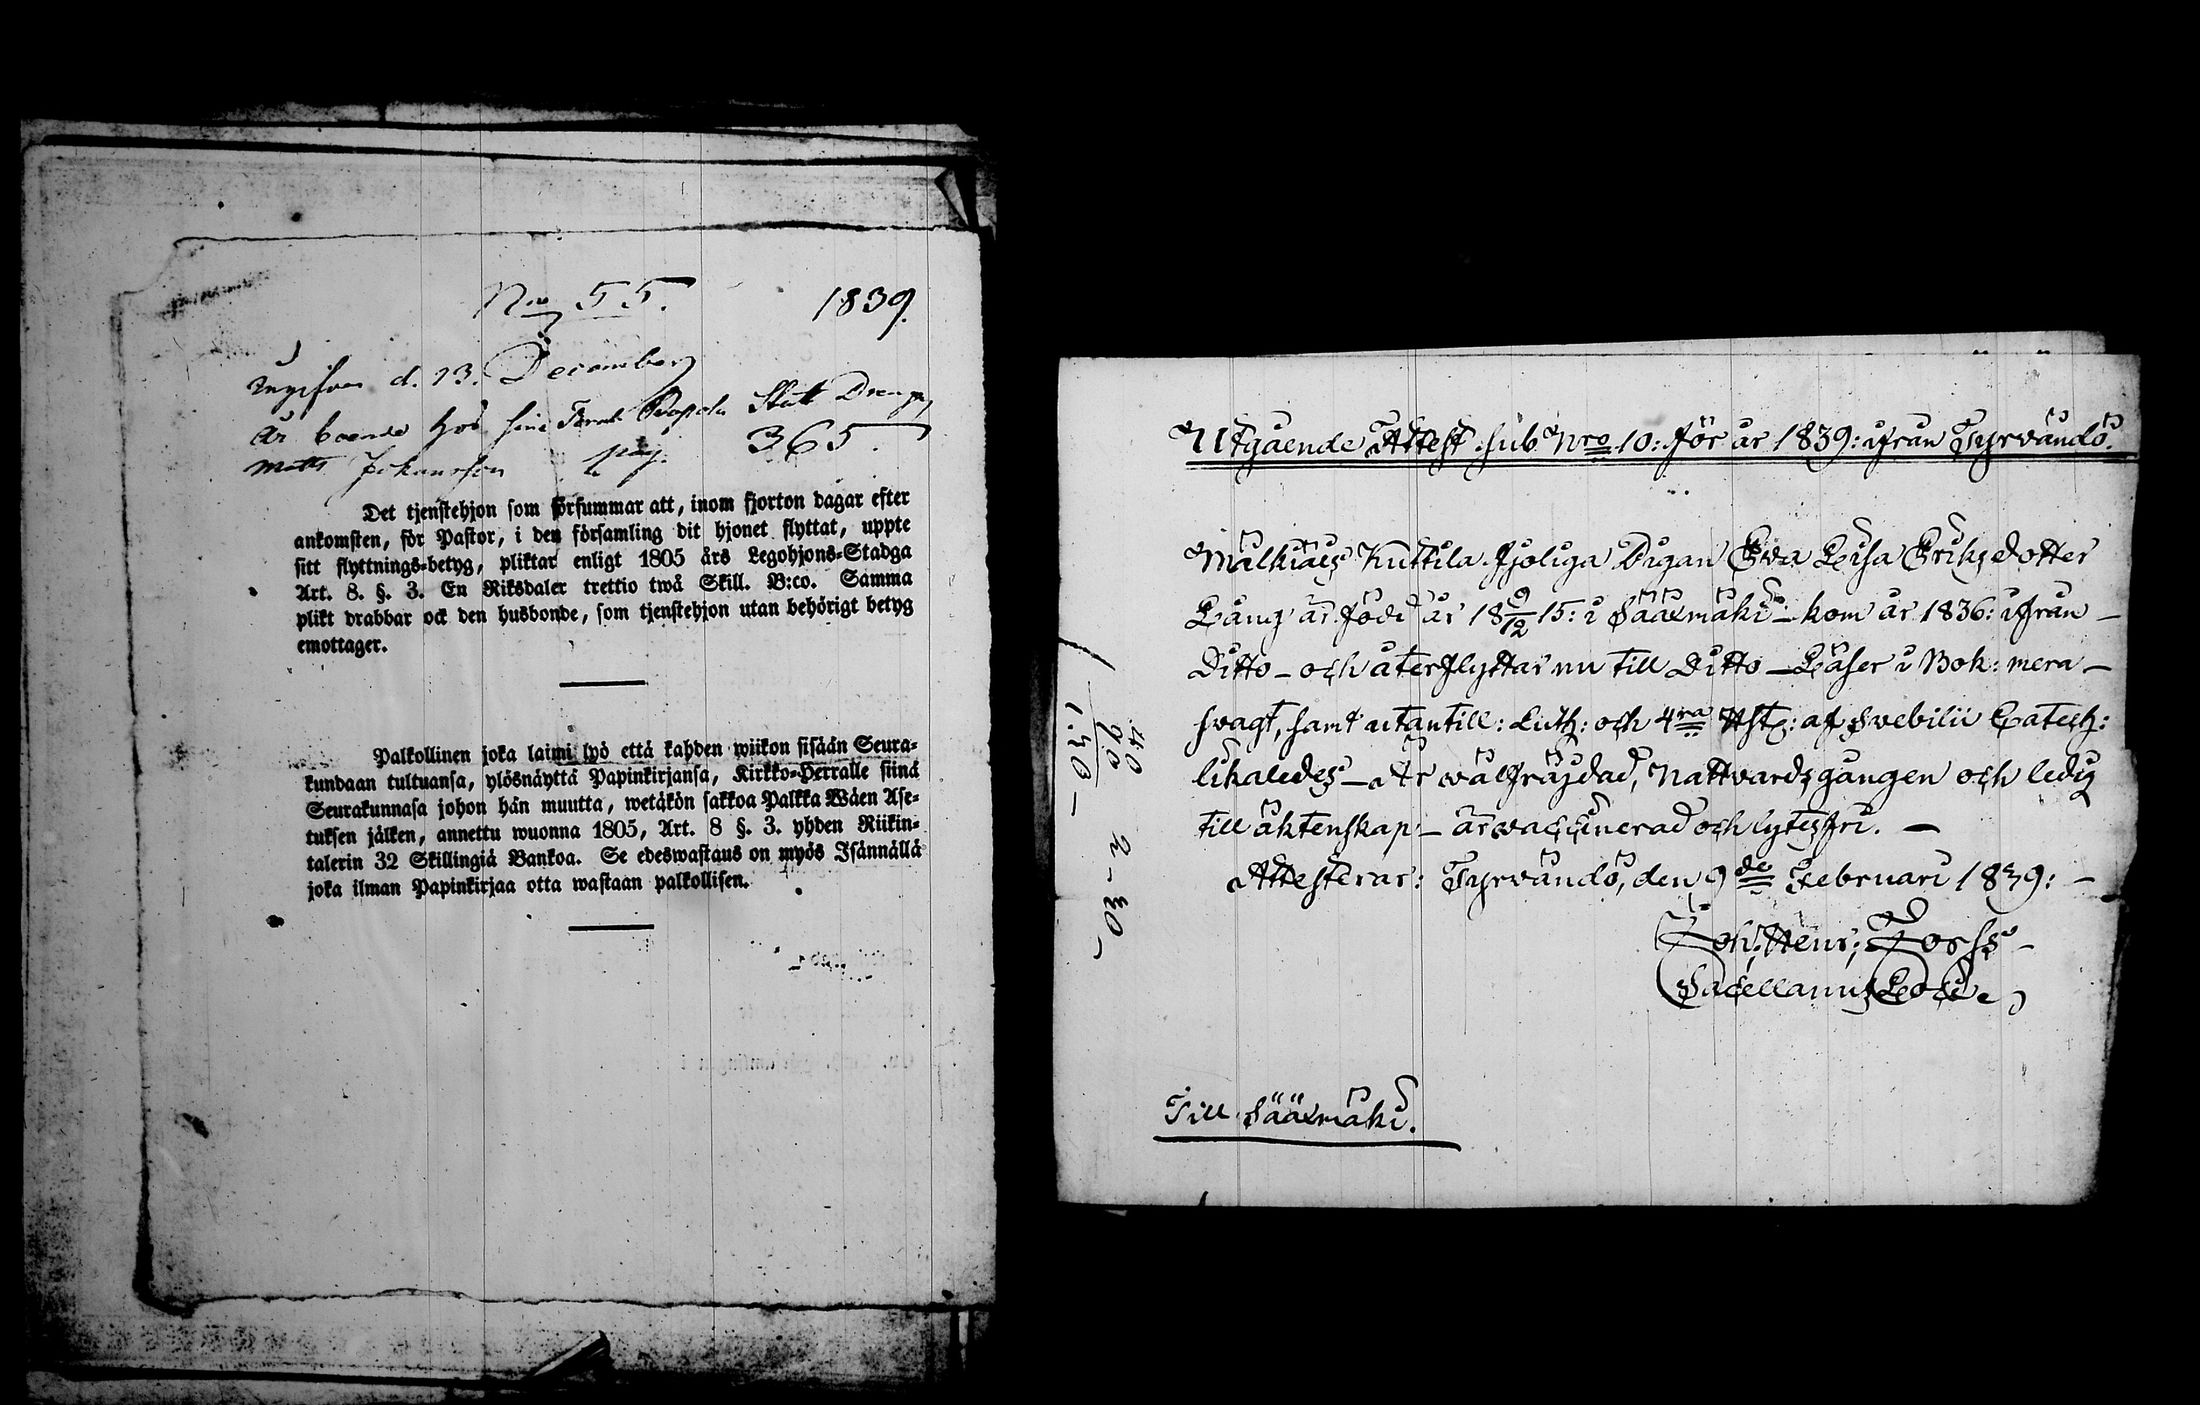 Nro 55. 1839.
Ingifven d. 23. December
är boende hos sine Torpala Statt Dreng
Matts Johansson pag. 365.
Det tjenstehjon som försummar att, inom fjorton dagar efter
ankomsten, för Pastor, i den församling dit hjonet flyttat, uppte
sitt flyttnings-betyg, pliktar enligt 1805 års Legohjons-Stadga
Art. 8. §. 3. En Riksdaler trettio twå Skill. B:co. Samma
plikt drabbar ock den husbonde, som tjenstehjon utan behörigt betyg
emottager.
Palkollinen joka laimi lyö että kahden wiikon sisään Seura-
kundaan tultuansa, ylösnäyttä Papinkirjansa, Kirkko-Herralle siinä
Seurakunnasa johon hän muutta, wetäkön sakkoa Palkka Wäen Ase-
tuksen jälken, annettu wuonna 1805, Art. 8 §. 3. yhden Riikin-
talerin 32 Skillingiä Bankoa. Se edeswastaus on myös Isännällä
joka ilman Papinkirjaa otta wastaan palkollisen.
Utgående Attest sub Nro 10: för år 1839: ifrån Tyrvändö.
Mälkiäis Kuttila fjoliga Pigan Eva Lisa Eriksdotter
Läng är född år 18 9/12 15: i Sääxmäki – kom år 1836: ifrån –
Ditto – och återflyttar nu till Ditto – Läser i Bok: mera –
svagt, samt utantill: Luth: och 4ra Hst: af Svebilii Catech:
likaledes – Är välfräjdad, Nattvards gången och ledig
till äktenskap – är vaccinerad och lytesfri. –
Attesterar: Tyrvändö, den 9de Februari 1839: –
Joh: Henr: Forss –
Sacellanus Loci
Till Sääxmäki.
40
90
1.30 –
2 – 30